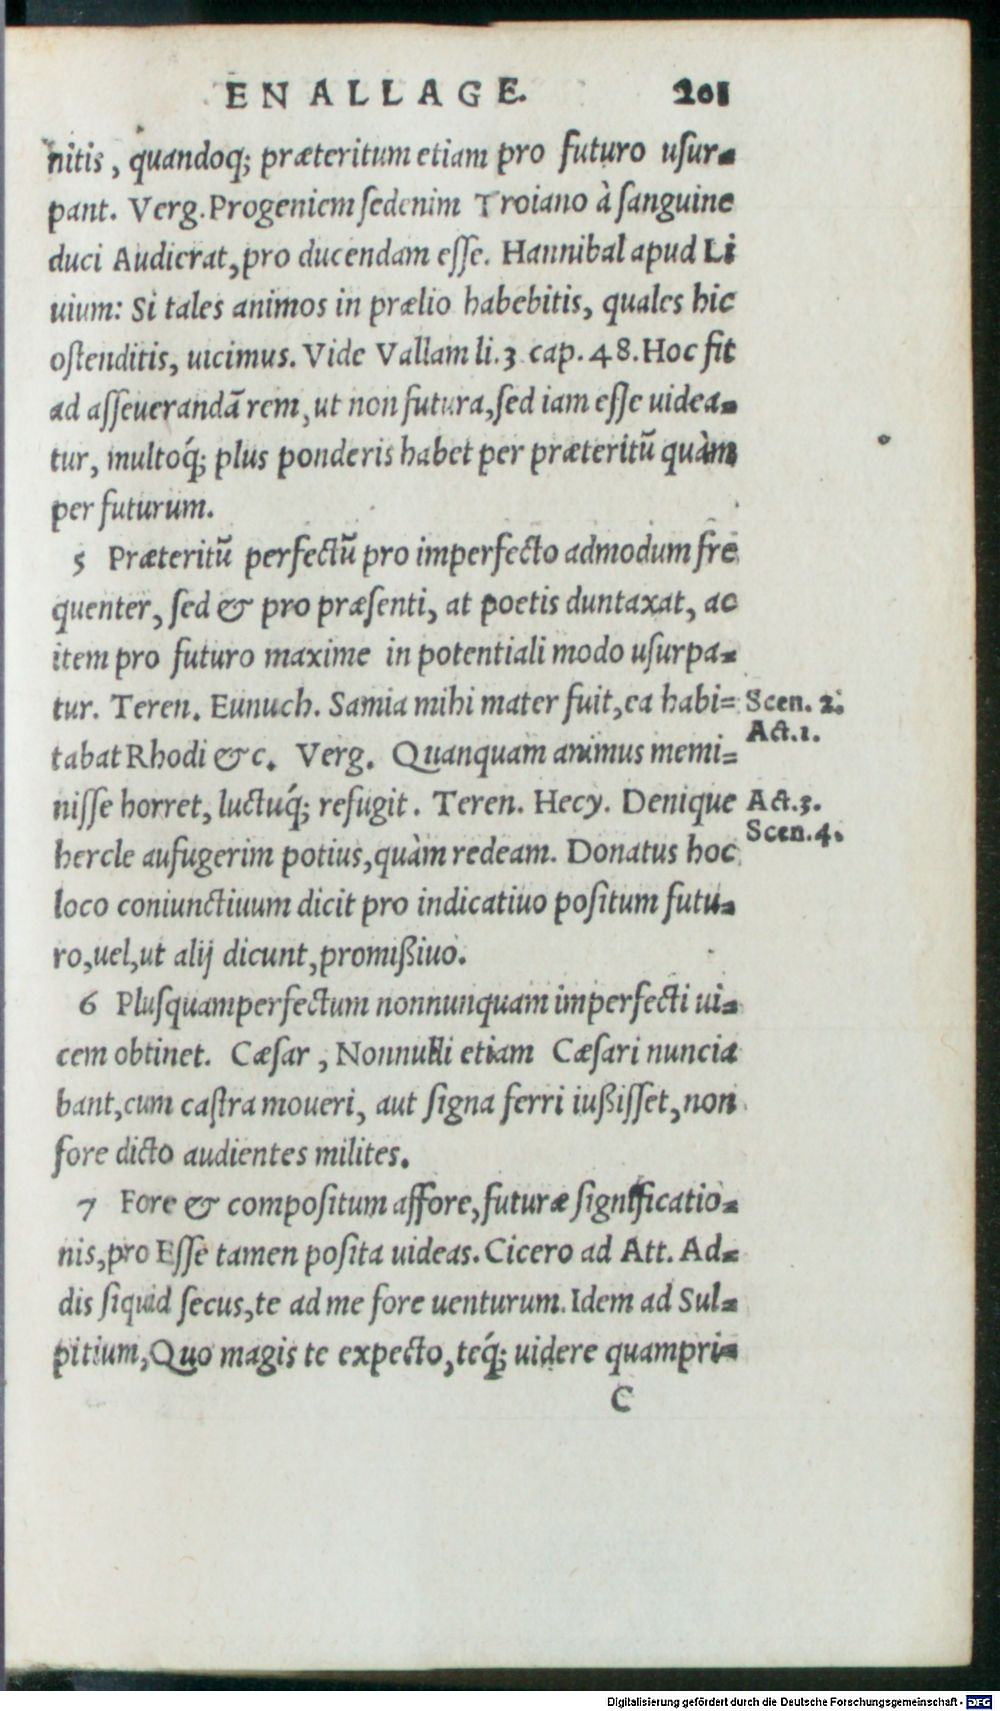 ENALLAGE. 201
nitis, quandoq; præteritum etiam pro futuro usur-
pant. Verg. Progeniem sedenim Troiano à sanguine
duci Audierat, pro ducendam esse. Hannibal apud Li
uium: Si tales animos in prælio habebitis, quales hic
ostenditis, uicimus. Vide Vallam li.3 cap.48. Hoc fit
ad asseuerandā rem, ut non futura, sed iam esse uidea-
tur, multoq́; plus ponderis habet per præteritū quàm
per futurum.
5 Præteritū perfectū pro imperfecto admodum fre
quenter, sed & pro præsenti, at poetis duntaxat, ac
item pro futuro maxime in potentiali modo usurpa-
tur. Teren. Eunuch. Samia mihi mater fuit, ea habi= Scen. 2.
Act.1.
tabat Rhodi &c. Verg. Quanquam animus memi=
nisse horret, luctuq́; refugit. Teren. Hecy. Denique Act.3.
Scen.4.
hercle aufugerim potius, quàm redeam. Donatus hoc
loco coniunctiuum dicit pro indicatiuo positum futu-
ro, uel, ut alij dicunt, promißiuo.
6 Plusquamperfectum nonnunquam imperfecti ui-
cem obtinet. Cæsar, Nonnulli etiam Cæsari nuncia
bant, cum castra moueri, aut signa ferri iußisset, non
fore dicto audientes milites.
7 Fore & compositum affore, futuræ significatio-
nis, pro Esse tamen posita uideas. Cicero ad Att. Ad-
dis siquid secus, te ad me fore uenturum. Idem ad Sul-
pitium, Quo magis te expecto, teq́; uidere quampri-
C
Digitalisierung gefördert durch die Deutsche Forschungsgemeinschaft - DFG